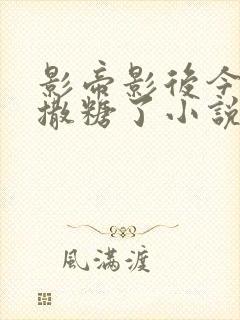 影帝影後今
撒糖了小說
風滿渡